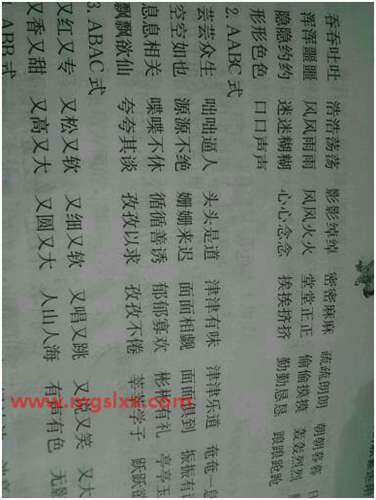 吞吞吐吐 浩浩荡荡 影影绰绰 密密麻麻 疏疏朗朗 朝朝暮暮
浑浑噩噩 风风雨雨 风风火火 堂堂正正 偷偷摸摸 轰轰烈烈
隐隐约约 迷迷糊糊 心心念念 挨挨挤挤 勤勤恳恳 踉踉跄跄
形形色色 口口声声
2. AABC 式
芸芸众生 咄咄逼人 头头是道 津津有味 津津乐道 奄奄一息
空空如也 源源不绝 姗姗来迟 面面相觑 面面俱到 振振有
息息相关 喋喋不休 循循善诱 郁郁寡欢 彬彬有礼 亭亭玉
飘飘欲仙 夸夸其谈 孜孜以求 孜孜不倦 莘莘学子 跃跃
3. ABAC 式
又红又专 又松又软 又细又软 又唱又跳 又说又笑 又大
又香又甜 又高又大 又圆又大 人山人海 有声有色 无影
ABB 式
www.mgslxx.com